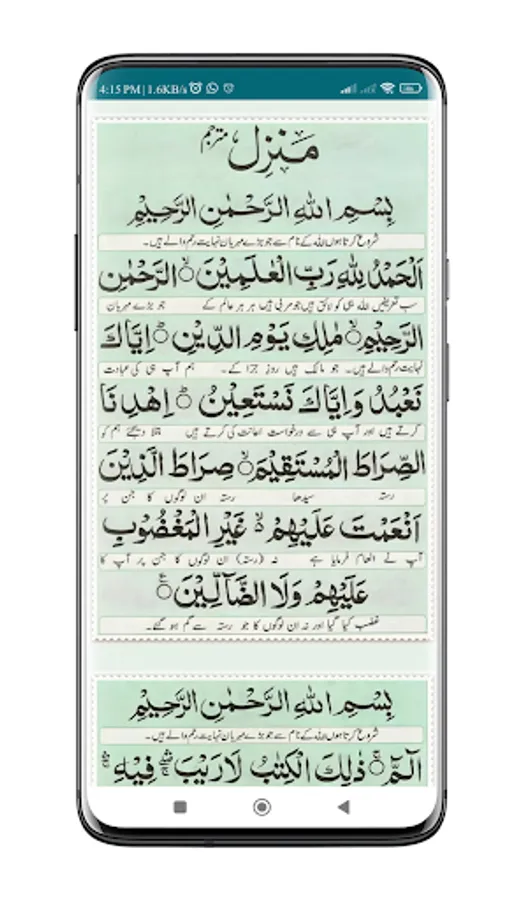 4:15 PM | 1.6KB/s
مَنزِل مترجم
بِسْمِ اللهِ الرَّحْمٰنِ الرَّحِيْمِ
شروع کرتا ہوں اللہ کے نام سے جو بڑے مہربان نہایت رحم والے ہیں۔
اَلْحَمْدُ لِلّٰهِ رَبِّ الْعٰلَمِيْنَ ۙ الرَّحْمٰنِ
سب تعریفیں اللہ ہی کو لائق ہیں جو مربی ہیں ہر ہر عالم کے جو بڑے مہربان
الرَّحِيْمِ ۙ مٰلِكِ يَوْمِ الدِّيْنِ ۗ اِيَّاكَ
نہایت رحم والے ہیں۔ جو مالک ہیں روز جزا کے۔ ہم آپ ہی کی عبادت
نَعْبُدُ وَاِيَّاكَ نَسْتَعِيْنُ ۗ اِهْدِنَا
کرتے ہیں اور آپ ہی سے درخواست اعانت کی کرتے ہیں بتلا دیجئے ہم کو
الصِّرَاطَ الْمُسْتَقِيْمَ ۙ صِرَاطَ الَّذِيْنَ
رستہ سیدھا رستہ ان لوگوں کا جن پر
اَنْعَمْتَ عَلَيْهِمْ ۙ غَيْرِ الْمَغْضُوْبِ
آپ نے انعام فرمایا ہے نہ (رستہ) ان لوگوں کا جن پر آپ کا
عَلَيْهِمْ وَلَا الضَّآلِّيْنَ ۧ
غضب کیا گیا اور نہ ان لوگوں کا جو رستہ سے گم ہو گئے۔
بِسْمِ اللهِ الرَّحْمٰنِ الرَّحِيْمِ
شروع کرتا ہوں اللہ کے نام سے جو بڑے مہربان نہایت رحم والے ہیں۔
الٓمّٓ ۚ ذٰلِكَ الْكِتٰبُ لَا رَيْبَ ۛ فِيْهِ ۛ